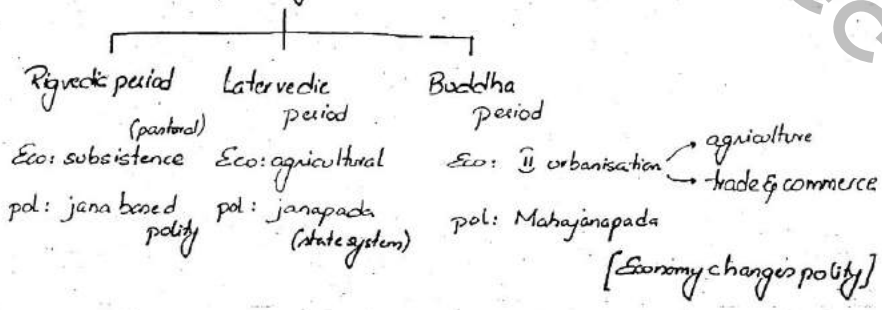 Rigvedic period
(pastoral)
Eco: subsistence
pol: jana based
polity
Later vedic
period
Eco: agricultural
pol: janapada
(state system)
Buddha
period
Eco: II urbanisation → agriculture
→ trade & commerce
pol: Mahajanapada
[Economy changes polity]